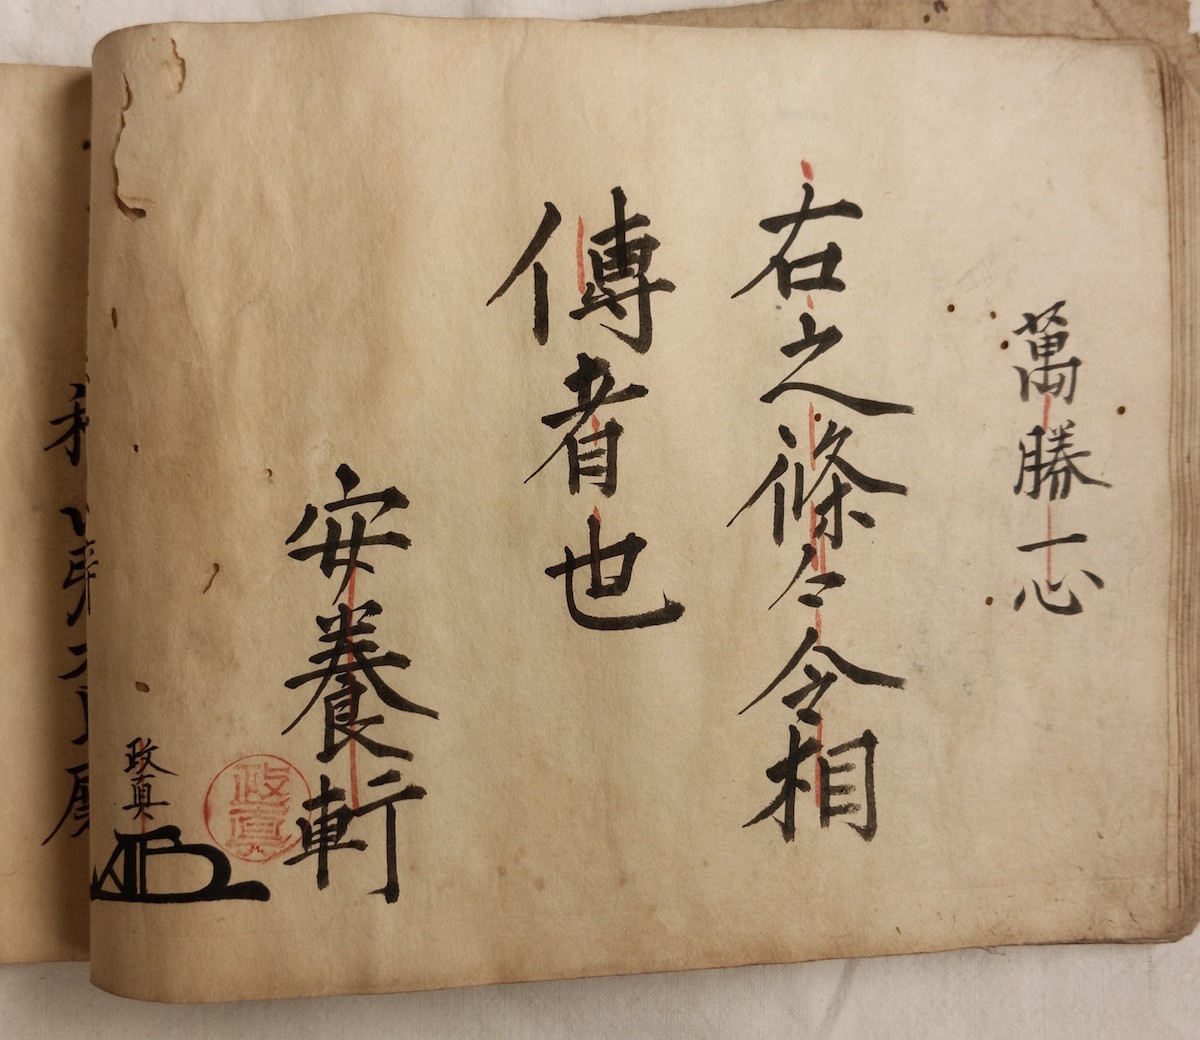 萬勝一心
右之條々令相
傳者也
安養軒
政真
政真